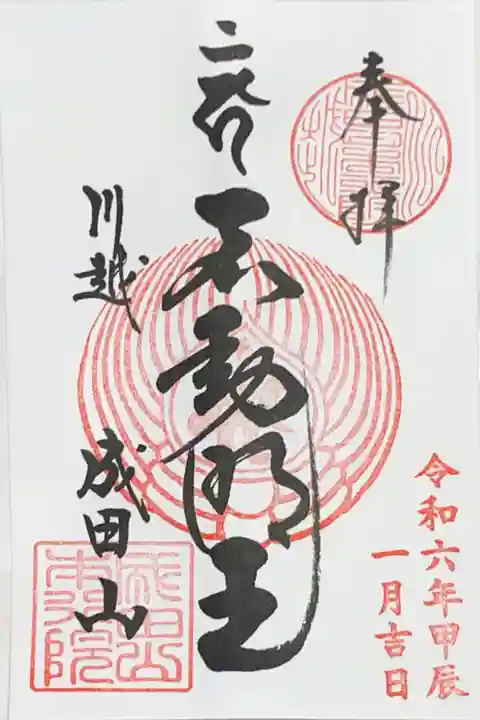 奉拝
令和六年甲辰
一月吉日
不動明王
川越
成田山
成田山
本行院